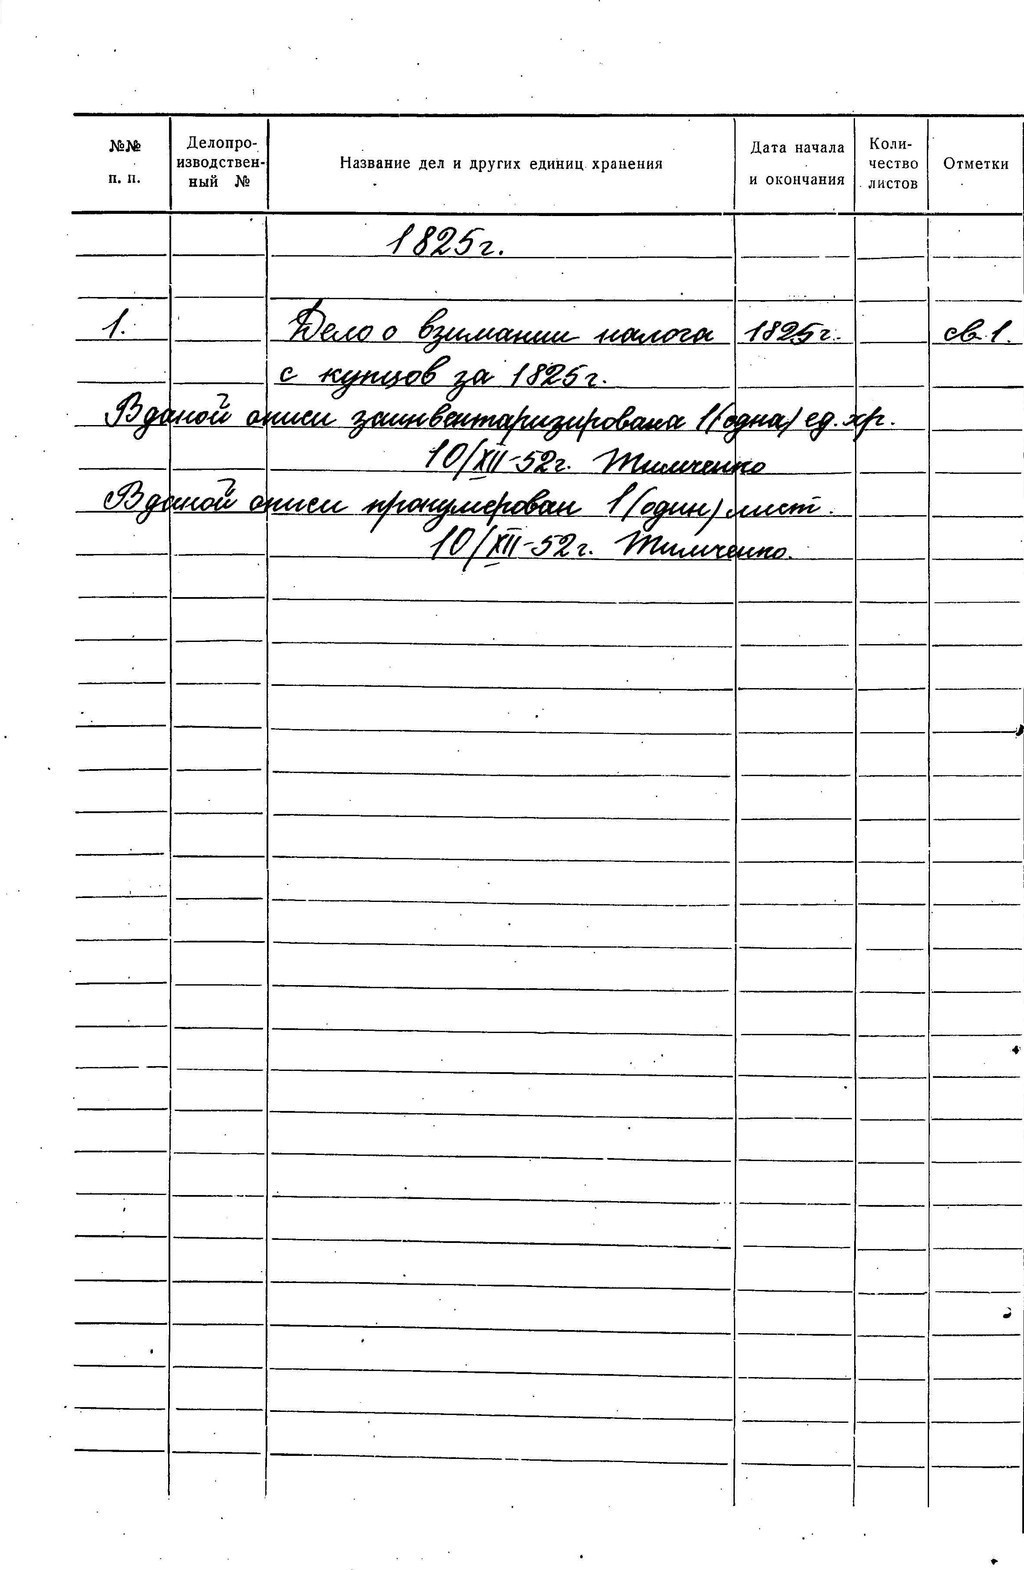 №№ п. п.
Делопро-
изводствен-
ный №
Название дел и других единиц хранения
Дата начала
и окончания
Коли-
чество
листов
Отметки
1825г.
1. Дело о взимании налога 1825г. св.1.
с купцов за 1825г.
В даной описи заинвентаризирована 1(одна) ед. хр.
10/XII-52г. Тимченко
В даной описи пронумерован 1(один) лист.
10/XII-52г. Тимченко.